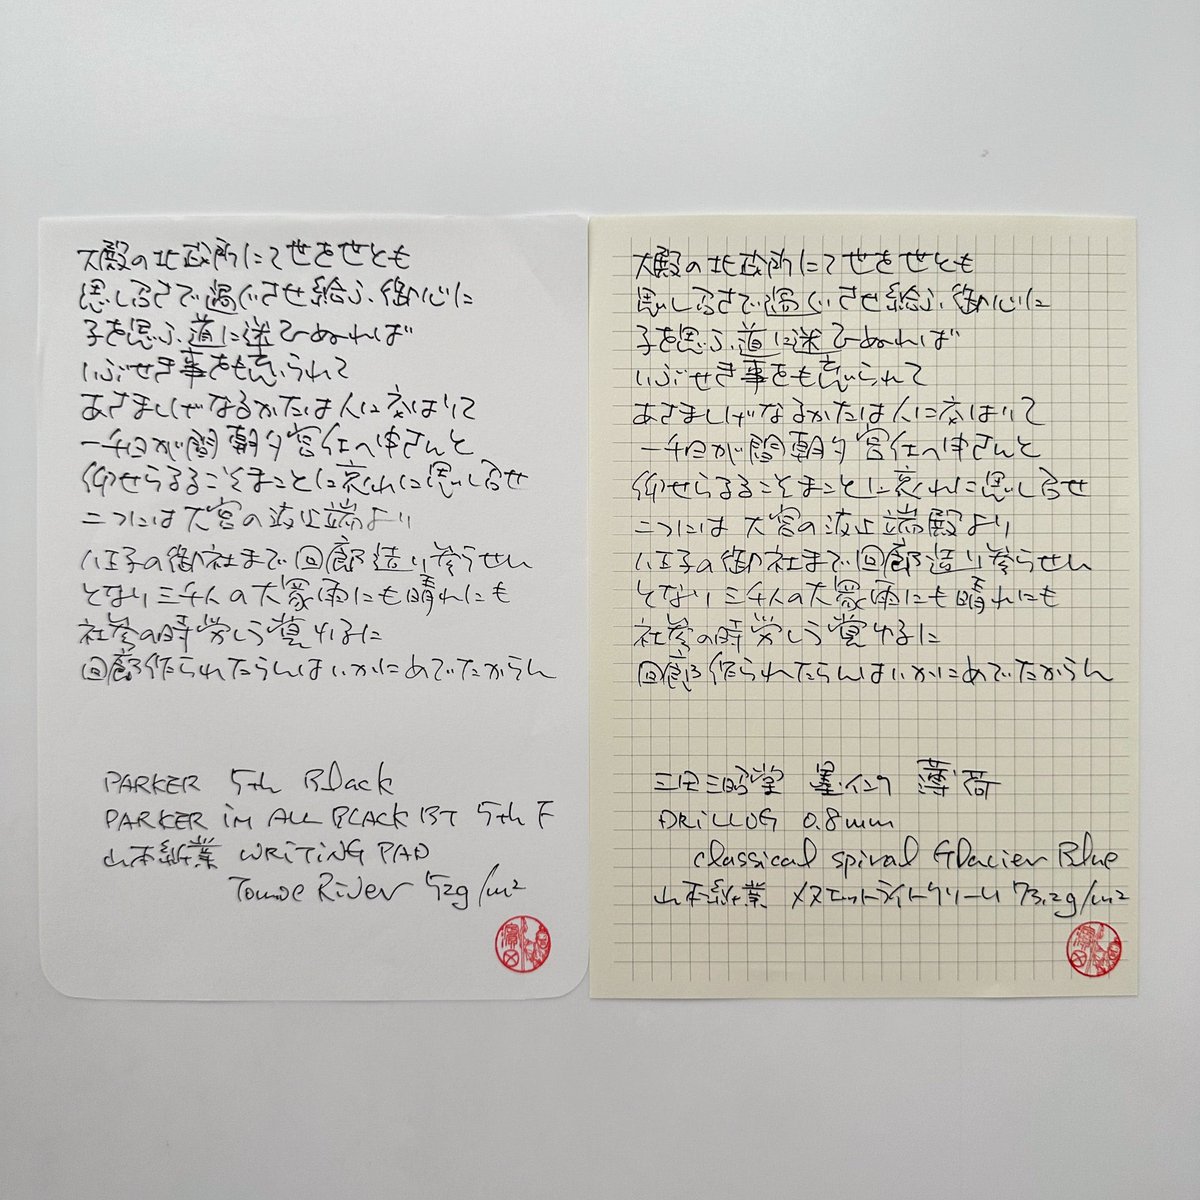 大殿の北政所にて世を世とも
思しるさで過ぐさせ給ふ御心に
子を思ふ道に迷ひぬれば
いぶせき事をも忘られて
あさましげなるかたは人に交はりて
一千日が間朝夕宮仕へ申さんと
仰せらるるこそまことに哀れに思し召せ
二つには大宮の波止端より
八王子の御社まで回廊造り参らせん
となり三千人の大衆雨にも晴れにも
社参の時労しう覚ゆるに
回廊作られたらんはいかにめでたからん
PARKER 5th Black
PARKER IM ALL BLACK BT 5th F
山本紙業 WRITING PAD
Tomoe River 52g/m²
大殿の北政所にて世を世とも
思しるさで過ぐさせ給ふ御心に
子を思ふ道に迷ひぬれば
いぶせき事をも忘られて
あさましげなるかたは人に交はりて
一千日が間朝夕宮仕へ申さんと
仰せらるるこそまことに哀れに思し召せ
二つには大宮の波止端殿より
八王子の御社まで回廊造り参らせん
となり三千人の大衆雨にも晴れにも
社参の時労しう覚ゆるに
回廊作られたらんはいかにめでたからん
三田三昭堂 墨インク 薄荷
DRILLOG 0.8mm
classical spiral Glacier Blue
山本紙業 メヌエットライトクリーム 73.2g/m²